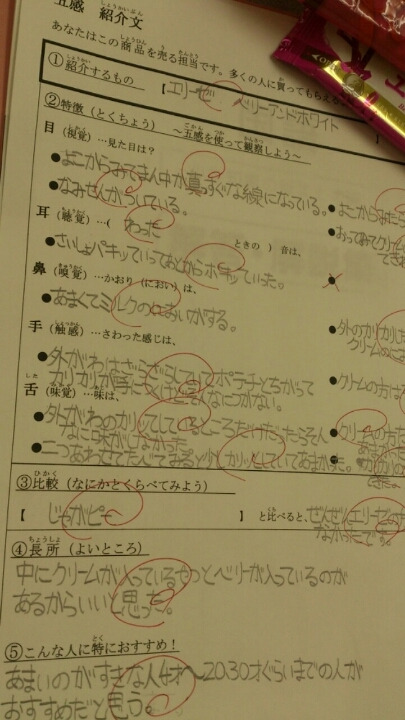 五感 紹介文
あなたはこの商品を売る担当です。多くの人に買ってもらえる
①紹介するもの 【エリーゼ ベリーアンドホワイト
②特徴（とくちょう） ～五感を使って観察しよう～
目（視覚）…見た目は？
●よこからみてまん中が真っすぐな線になっている。
●よこからみたら
●なみせんがついている。
●おってみてクリーム
耳（聴覚）…（ わった ときの ）音は、
●さいしょパキッていってあとからポキッていった。
鼻（嗅覚）…かおり（におい）は、
●あまくてミルクのにおいがする。
●外のカリカリ
クリームのに
手（触感）…さわった感じは、
●外がわはざらざらしていてポテチとちがって
カリカリが手に
●クリームの方は
舌（味覚）…味は、
●外がわのカリってしているところだけたべたらそん
なに味がしなかった
●クリームの方
●二つあわせてたべてみると少しカリッとしていてあまかった。
③比較（なにかとくらべてみよう）
【 じゃがビー 】と比べると、ぜんぜんエリーゼの方
なかったです。
④長所（よいところ）
中にクリームが入っているやつとベリーが入っているのが
あるからいいと思った。
⑤こんな人に特におすすめ！
あまいのがすきな人4才～20.30才ぐらいまでの人が
おすすめだと思う。